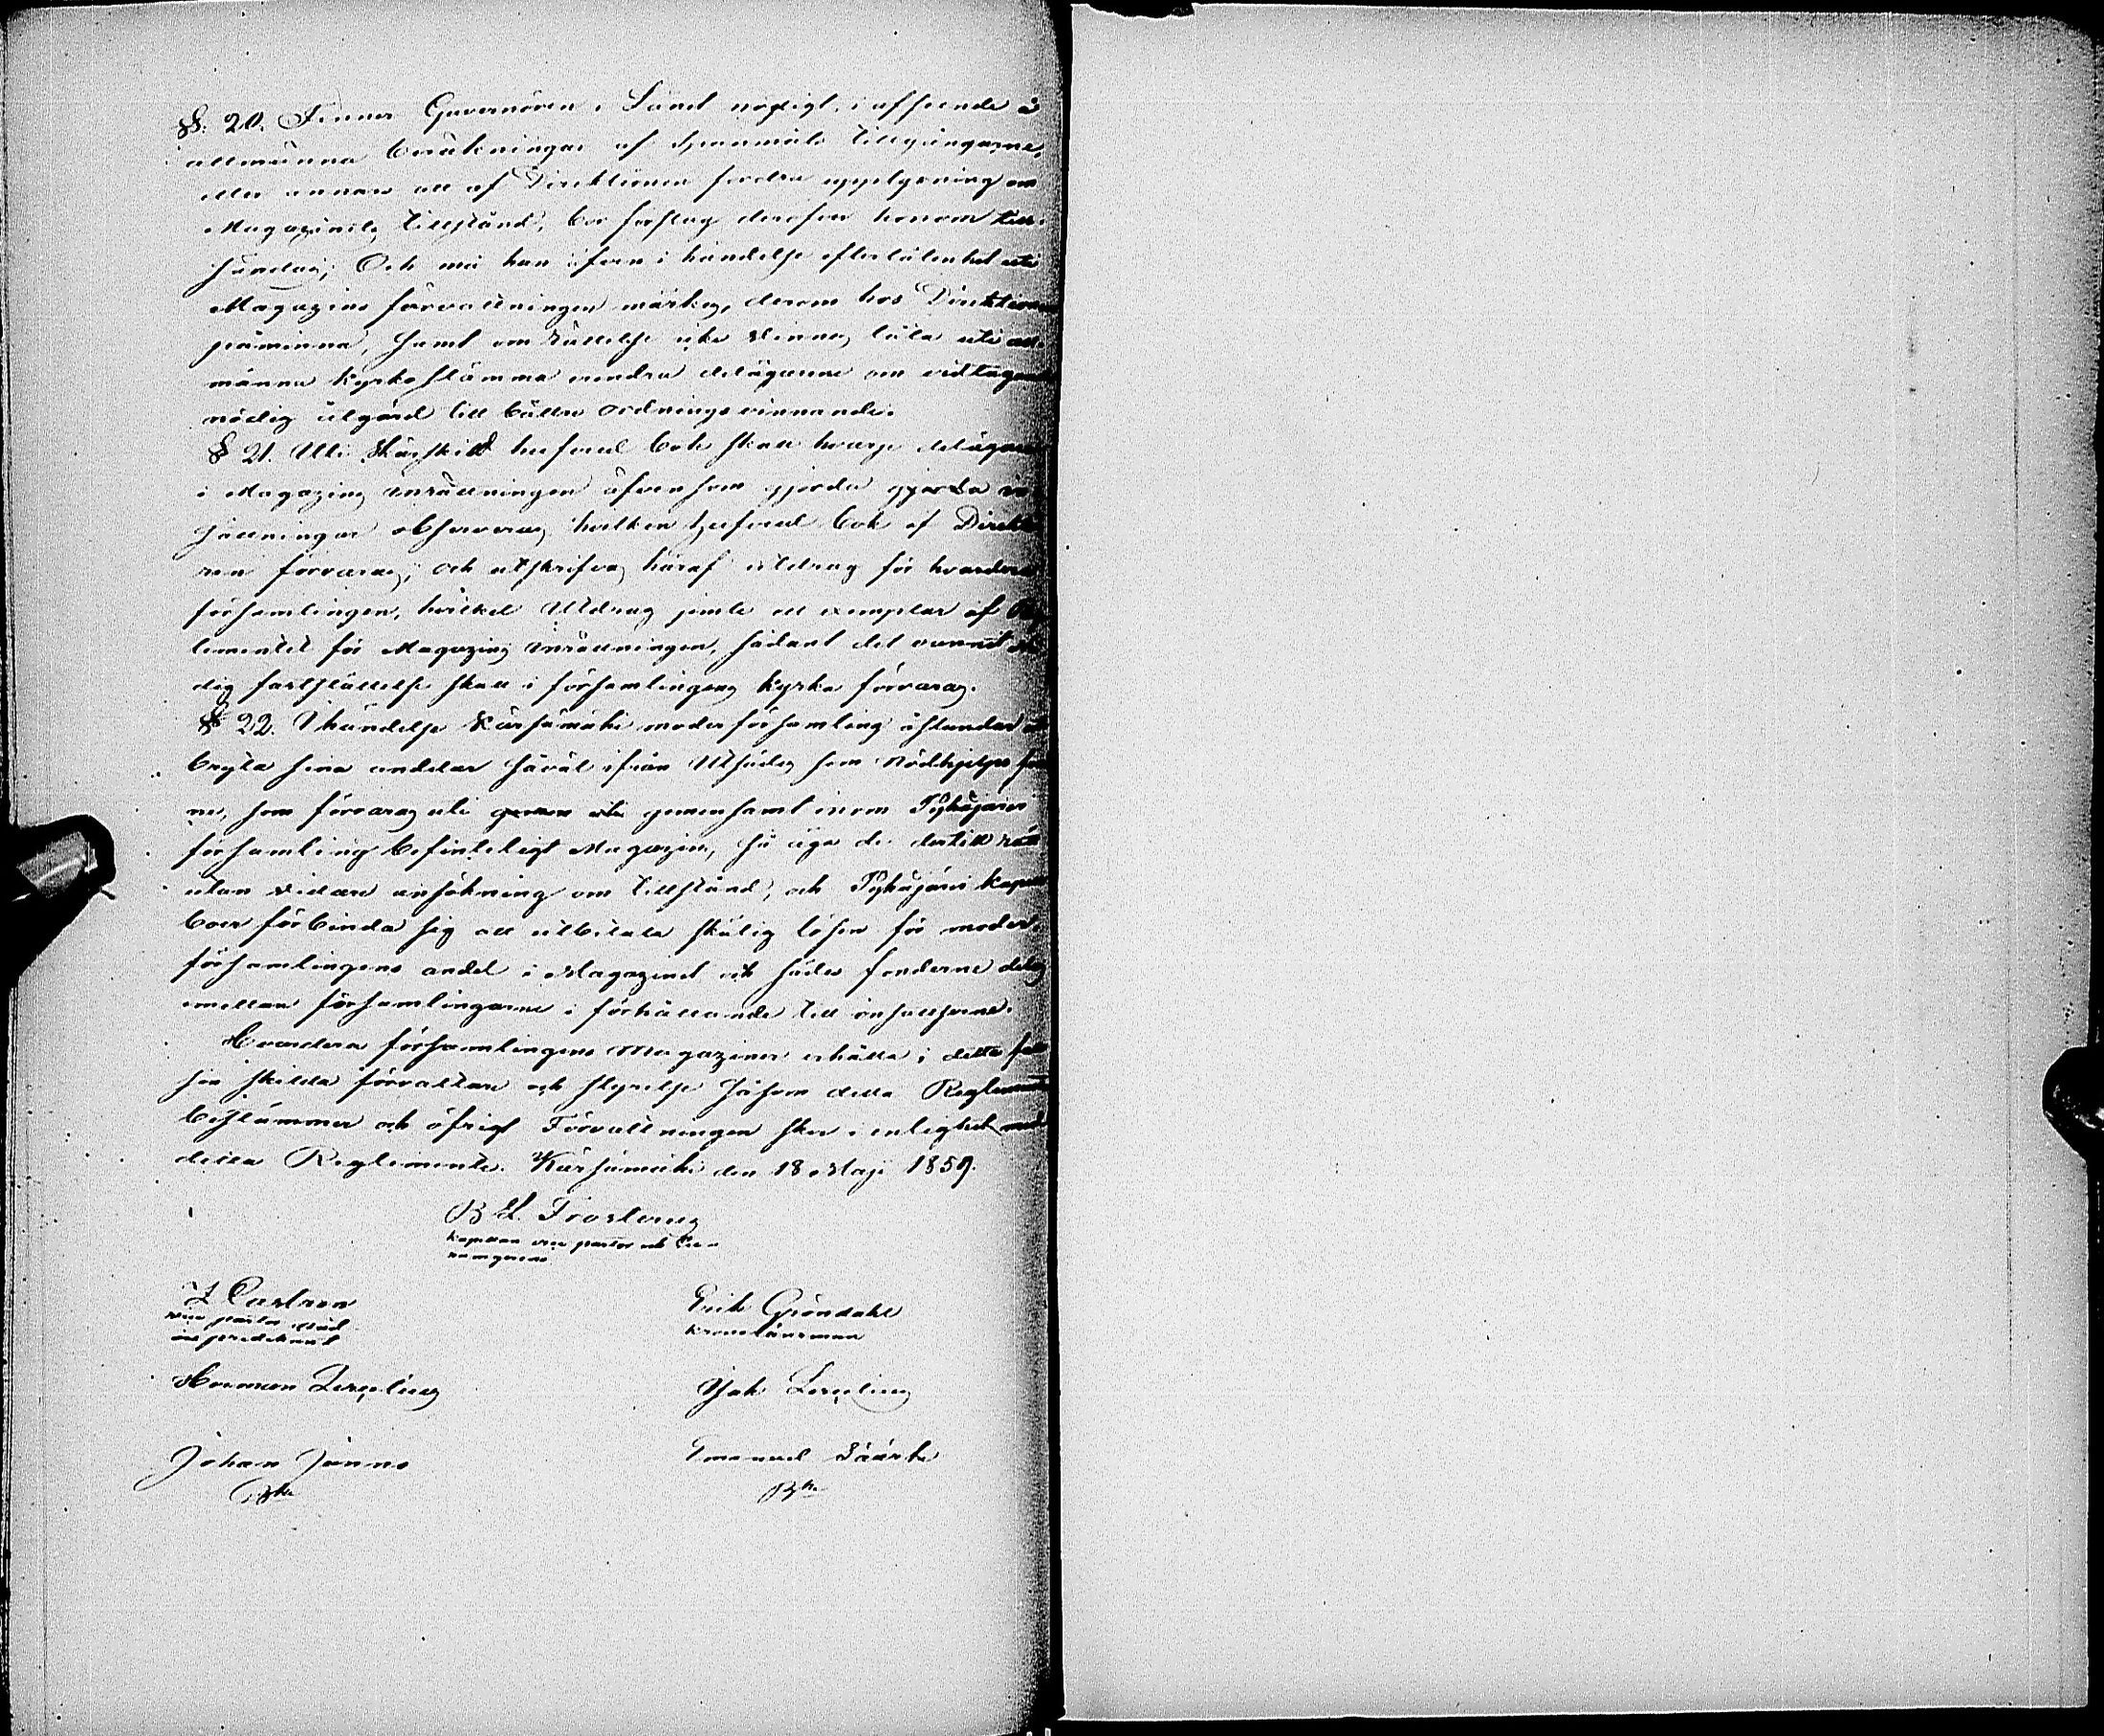 §. 20. Finner Guvernören i Länet nödigt, i afseende å
allmänna beräkningar af Spanmåls tillgångarne,
eller annars att af Direktionen fordra upplysning om
Magazinets tillstånd, bör förslag deröfver honom till-
sändas; Och må han äfven i händelse efterlåtenhet uti
Magazins förvaltningen märkes, derom hos Direktionen
påminna, samt om rättelse icke vinnes låta uti all-
männa kyrkostämma delägarne om vidtagande
nödig åtgärd till bättre ordnings vinnande.
§ 21. Uti särskild hufvud bok skall hvarje delägare
i Magazins inrättningen äfvensom gjorda gjorda
sättningar observeras, hvilken hufvud bok af Direktio-
nen förvaras, och utskrifves häraf utdrag för hvardera
församlingen, hvilket Utdrag jemte ett exemplar af Reg-
lementet för Magazins inrättningen, sådant det vunnit
dig fastställelse skall i församlingens kyrka förvaras.
§ 22. I händelse Kärsämäki moderförsamling åstundar att
bryta sina andelar såväl ifrån Utsädes som Nödhjelps
ne, som förvaras uti gemensamt inom Pyhäjärvi
församling befinteligt Magazin, så äga de dertill rätt
utan vidare ansökning om tillstånd, och Pyhäjärvi kapell
boer förbinda sig att utbetala skälig lösen för moder-
församlingens andel i Magazinet och sådes fonderne delas
emellan församlingarne i förhållande till insatserne.
Hvardera församlingens Magaziner erhålla i detta fall
sin skilda förvaltare och styrelse såsom detta Reglemente
bestämmer och öfrigt Förvaltningen sker i enlighet med
detta Reglemente. Kärsämäki den 18 Maji 1859.
B L. Frosterus
kapellan vice pastor
J Castren
vice pastor
Erik Gröndahl
kronolänsman
Herman Zerpling
Jak Zerpling
Johan
Emanuel